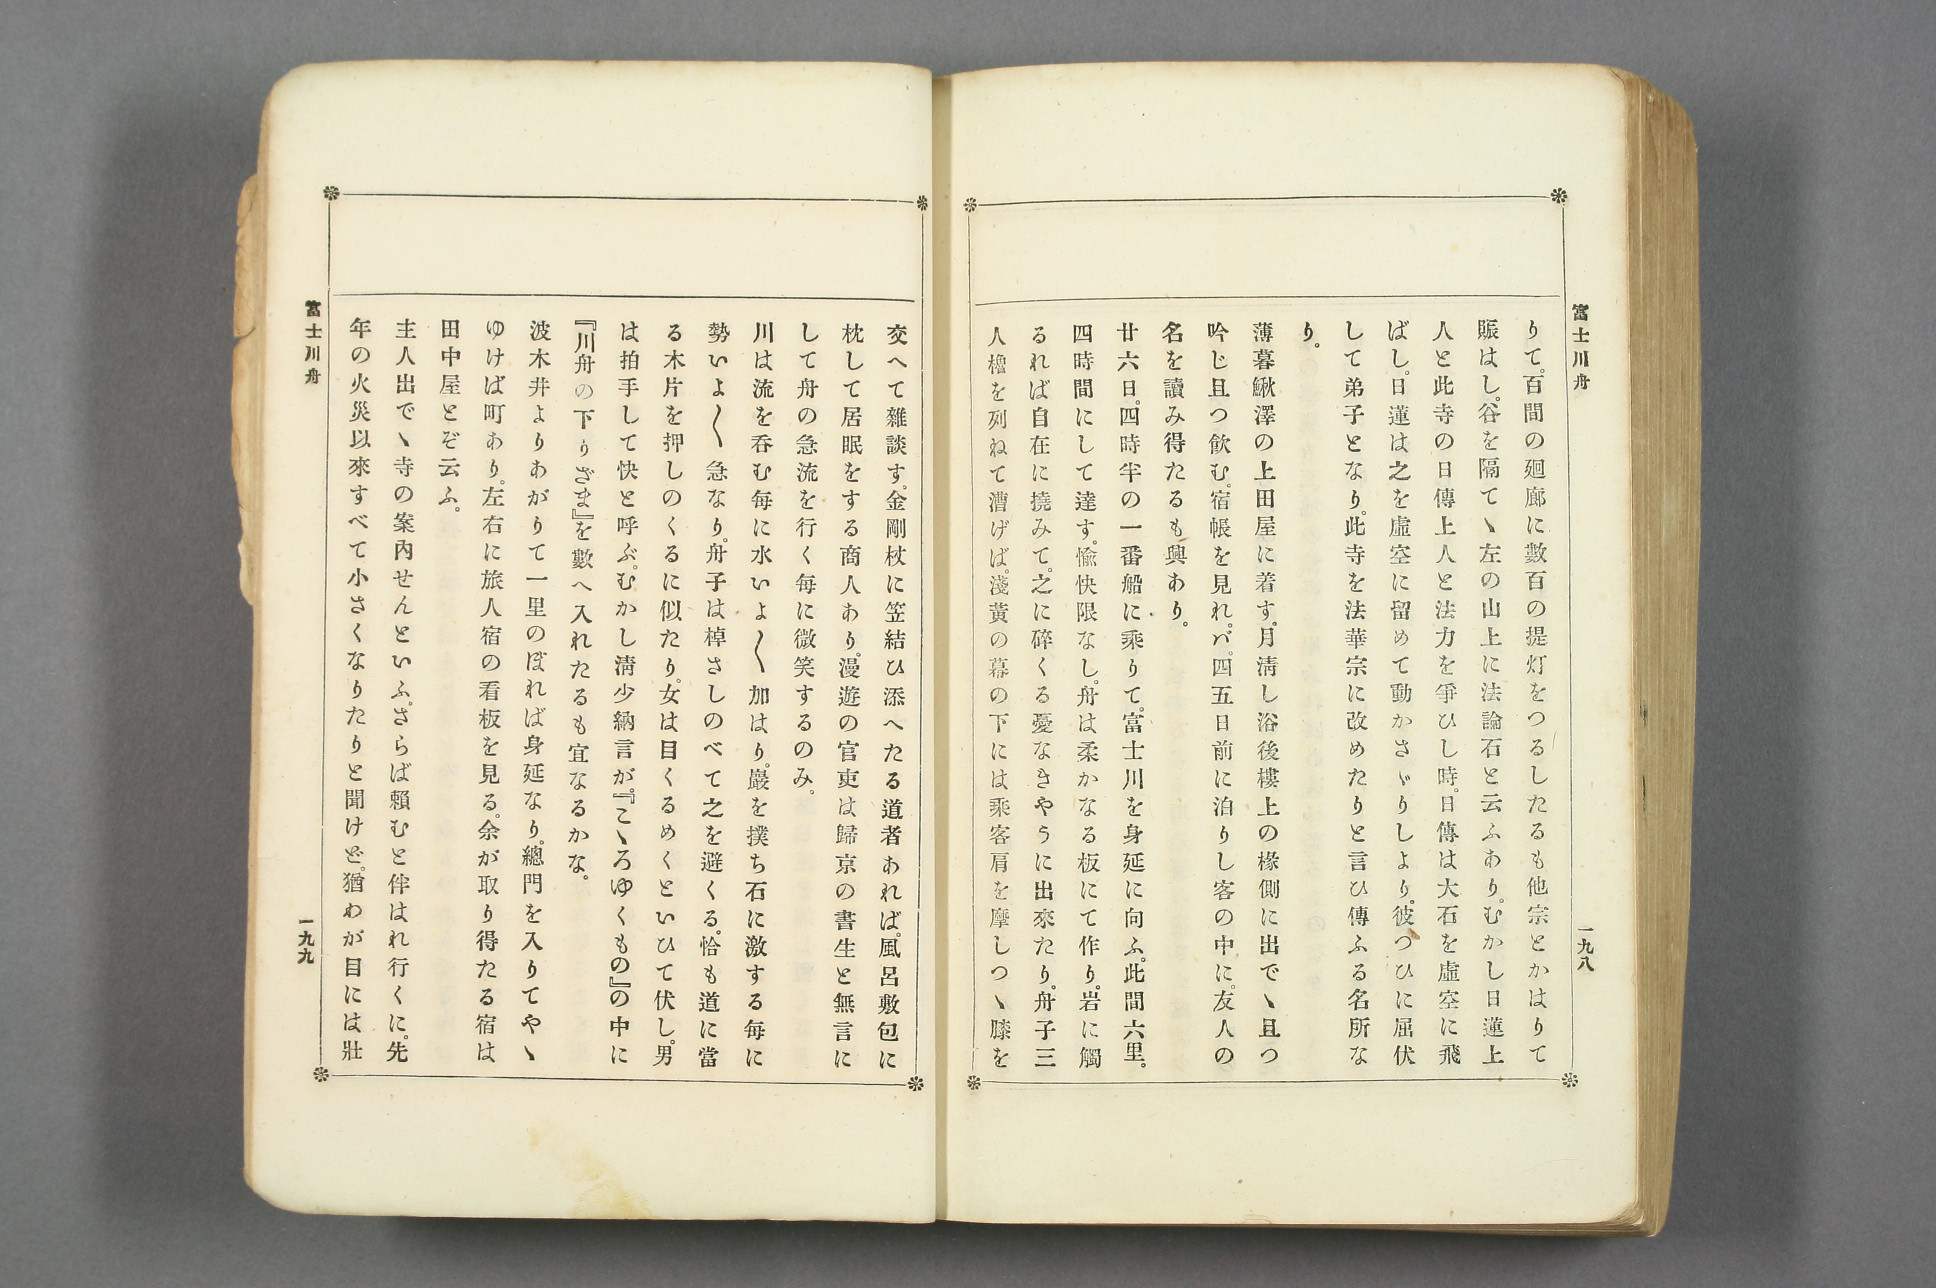 富士川舟
一九八
りて。百間の廻廊に數百の提灯をつるしたるも他宗とかはりて
賑はし。谷を隔てゝ左の山上に法論石と云ふあり。むかし日蓮上
人と此寺の日傳上人と法力を爭ひし時。日傳は大石を虛空に飛
ばし。日蓮は之を虛空に留めて動かさゞりしより。彼つひに屈伏
して弟子となり。此寺を法華宗に改めたりと言ひ傳ふる名所な
り。
薄暮鰍澤の上田屋に着す。月淸し浴後樓上の椽側に出でゝ且つ
吟じ且つ飮む。宿帳を見れバ。四五日前に泊りし客の中に。友人の
名を讀み得たるも興あり。
廿六日。四時半の一番船に乘りて。富士川を身延に向ふ。此間六里。
四時間にして達す。愉快限なし。舟は柔かなる板にて作り。岩に觸
るれば自在に撓みて。之に碎くる憂なきやうに出來たり。舟子三
人櫓を列ねて漕げば。淺黃の幕の下には乘客肩を摩しつゝ膝を
交へて雜談す。金剛杖に笠結ひ添へたる道者あれば。風呂敷包に
枕して居眠をする商人あり。漫遊の官吏は歸京の書生と無言に
して舟の急流を行く每に微笑するのみ。
川は流を呑む每に水いよ〱加はり。巖を撲ち石に激する每に
勢いよ〱急なり。舟子は棹さしのべて之を避くる。恰も道に當
る木片を押しのくるに似たり。女は目くるめくといひて伏し。男
は拍手して快と呼ぶ。むかし淸少納言が。『こゝろゆくもの』の中に
『川舟の下りざま』を數へ入れたるも宜なるかな。
波木井よりあがりて一里のぼれば身延なり。總門を入りてやゝ
ゆけば町あり。左右に旅人宿の看板を見る。余が取り得たる宿は
田中屋とぞ云ふ。
主人出でゝ寺の案內せんといふ。さらば賴むと伴はれ行くに。先
年の火災以來すべて小さくなりたりと聞けど。猶わが目には壯
富士川舟
一九九